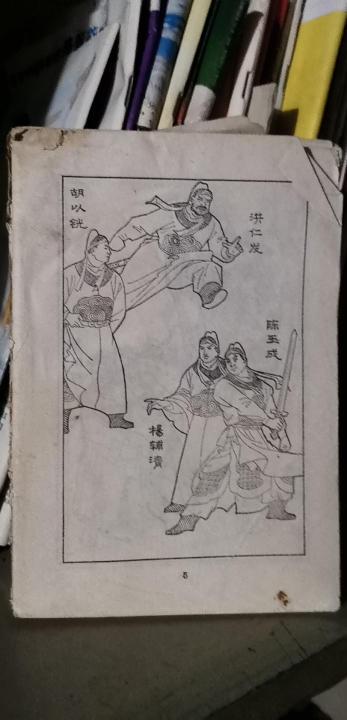 胡以晄
洪仁发
陈玉成
杨辅清
5